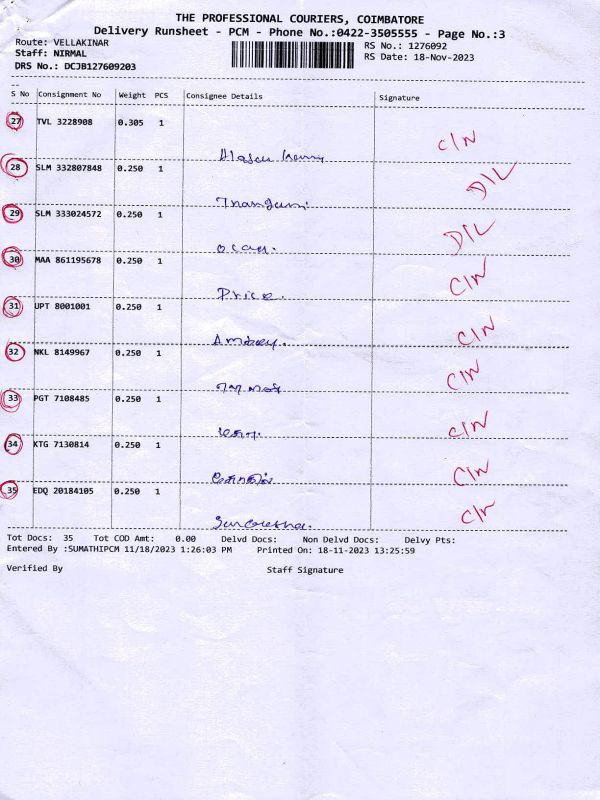 THE PROFESSIONAL COURIERS, COIMBATORE
Delivery Runsheet - PCM - Phone No.:0422-3505555 - Page No.:3
Route: VELLAKINAR RS No.: 1276092
Staff: NIRMAL RS Date: 18-Nov-2023
DRS No.: DCJB127609203
S No Consignment No Weight PCS Consignee Details Signature
27 TVL 3228908 0.305 1 C/N
28 SLM 332807848 0.250 1 D/L
29 SLM 333024572 0.250 1 D/L
30 MAA 861195678 0.250 1 C/N
Price.
31 UPT 8001001 0.250 1 C/N
32 NKL 8149967 0.250 1 C/N
33 PGT 7108485 0.250 1 C/N
34 KTG 7130814 0.250 1 C/N
35 EDQ 20184105 0.250 1 C/N
Tot Docs: 35 Tot COD Amt: 0.00 Delvd Docs: Non Delvd Docs: Delvy Pts:
Entered By :SUMATHIPCM 11/18/2023 1:26:03 PM Printed On: 18-11-2023 13:25:59
Verified By Staff Signature